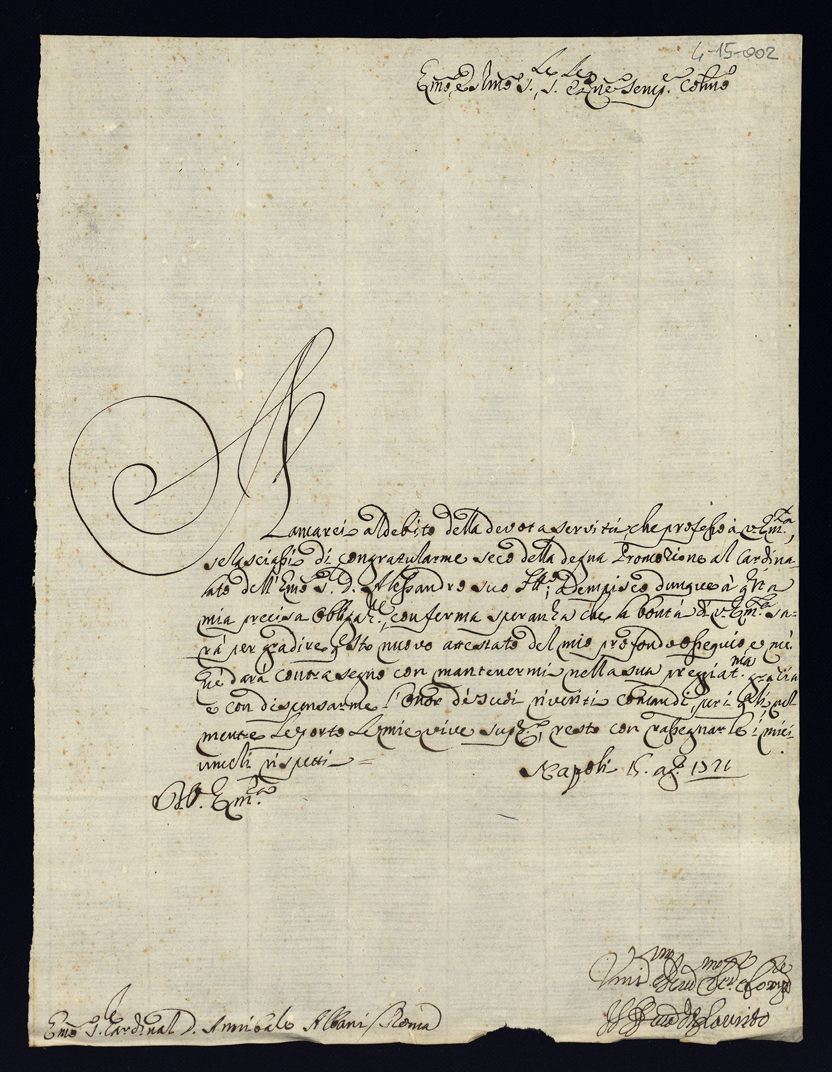 4-15-002
Emo, e Rmo Sr., Sr. e Pne semp.e Colmo
Mancarei al debito della devota servitù, che professo à V. Em.za,
se lasciassi di congratularme seco della degna Promozione al Cardina-
lato dell'Emo Sr. D. Alessandro suo Fllo; Adempisco dunque à qsta
mia precisa obligaz.ne, con ferma speranza che la bontà di V. Em.za sa-
rà per gradire qsto nuovo attestato del mio profondo ossequio, e me
ne darà contrasegno con mantenermi nella sua pregiat.ma grazia
e con dispensarme l'onor de suoi riveriti comandi, per i quali
mente le porto le mie vive supp.e, resto con rassegnarle i miei
umili rispetti =
Napoli 15. ag.o 1721
D. V. Em.za
Umil.mo
Emo Sr. Cardinal D. Annibale Albani / Roma